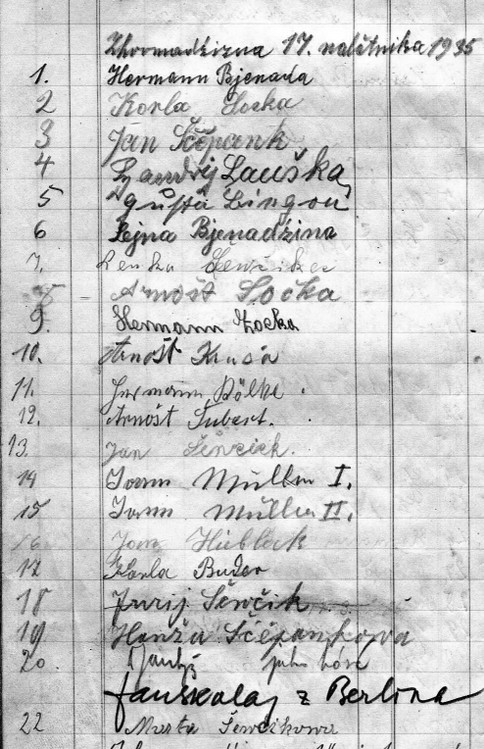 Zhromadźizna 17. nalětnika 1935
1. Hermann Bjenada
2 Korla Locka
3 Jan Šćěpank
4 Handrij Lauška
5 Bingoń
6 Lejna Bjenadźina
7. Lenka
8 Arnošt Locka
9. Hermann Locka
10. Arnošt Krusa
11. Hermann Bölke
12. Arnošt Šubert.
13. Jan Šewcick.
14 Jann Müller I.
15 Jann Müller II.
16 Jan Hieblack
17 Korla Budar
18 Jurij Šewčik
19 Hanža Šćěpankowa
20.
z Berlina
22 Marta Šewčikowa